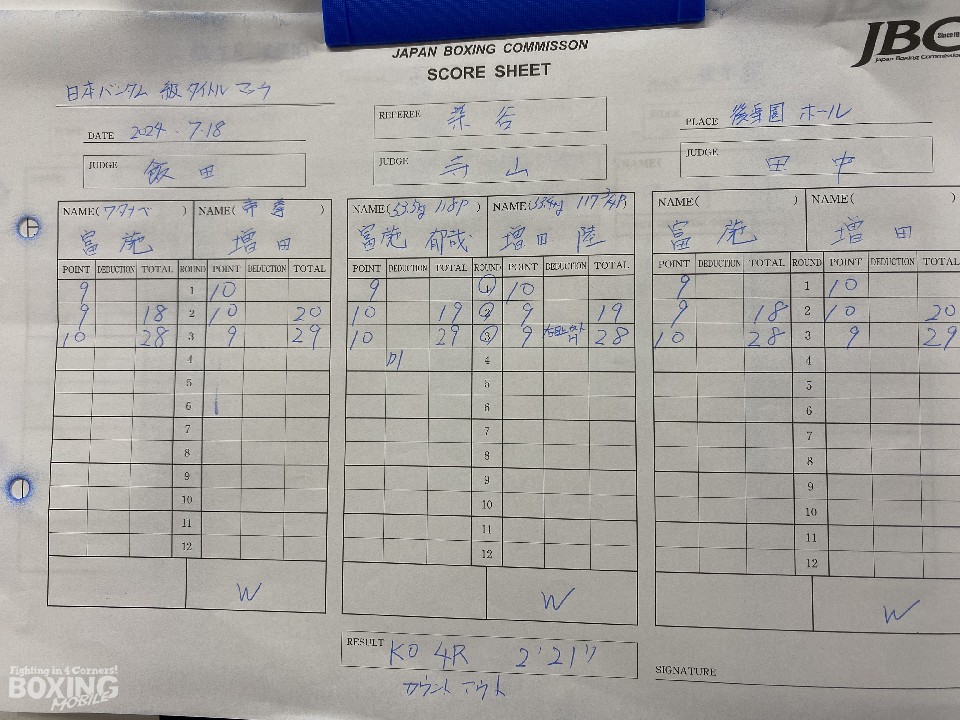 JAPAN BOXING COMMISSON
SCORE SHEET
JBC
Since 19
Japan Boxing Commission
日本バンタム級タイトルマッチ
DATE 2024.7.18
REFEREE 染谷
PLACE 後楽園ホール
JUDGE 飯田
JUDGE 寺山
JUDGE 田中
NAME(ワタナベ) NAME(帝拳)
富施 増田
POINT DEDUCTION TOTAL ROUND POINT DEDUCTION TOTAL
9 1 10
9 18 2 10 20
10 28 3 9 29
4
5
6
7
8
9
10
11
12
W
NAME(53.5kg 118P) NAME(53.4kg 117 3/4P)
富施 郁哉 増田 陸
POINT DEDUCTION TOTAL ROUND POINT DEDUCTION TOTAL
9 1 10
10 19 2 9 19
10 29 3 9 28
4
5
6
7
8
9
10
11
12
W
NAME( ) NAME(
富施 増田
POINT DEDUCTION TOTAL ROUND POINT DEDUCTION TOTAL
9 1 10
9 18 2 10 20
10 28 3 9 29
4
5
6
7
8
9
10
11
12
W
RESULT KO 4R 2'21"
カウントアウト
SIGNATURE
Fighting in 4 Corners!
BOXING
MOBILE